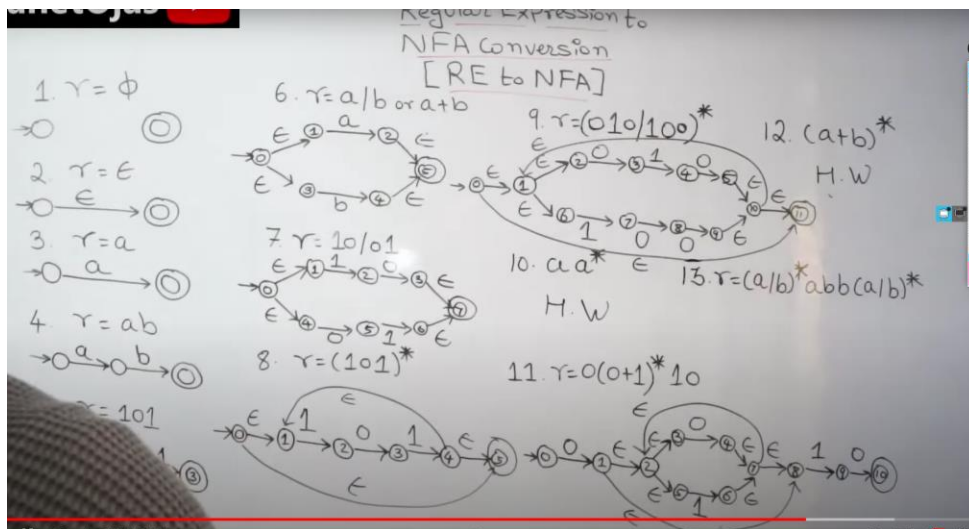 Regular Expression to
NFA Conversion
[RE to NFA]
1. r=ϕ
2. r=ε
ε
3. r=a
a
4. r=ab
a b
r=101
1
3
6. r=a/b or a+b
ε 1 a 2 ε
0
ε 3 b 4 ε
7. r=10/01
ε 1 1 2 0 3
0 7
ε 4 0 5 1 6 ε
8. r=(101)*
ε
0 ε 1 1 2 0 3 1 4 ε 5
ε
9. r=(010/100)*
ε
0 ε 1 ε 2 0 3 1 4 0 5 ε 10 ε 11
ε 6 1 7 0 8 0 9 ε
ε
10. aa*
H.W
11. r=0(0+1)*10
ε
0 0 1 ε 2 ε 3 0 4 ε 7 ε 8 1 9 0 10
ε 5 1 6 ε
ε
12. (a+b)*
H.W
13. r=(a/b)*abb(a/b)*